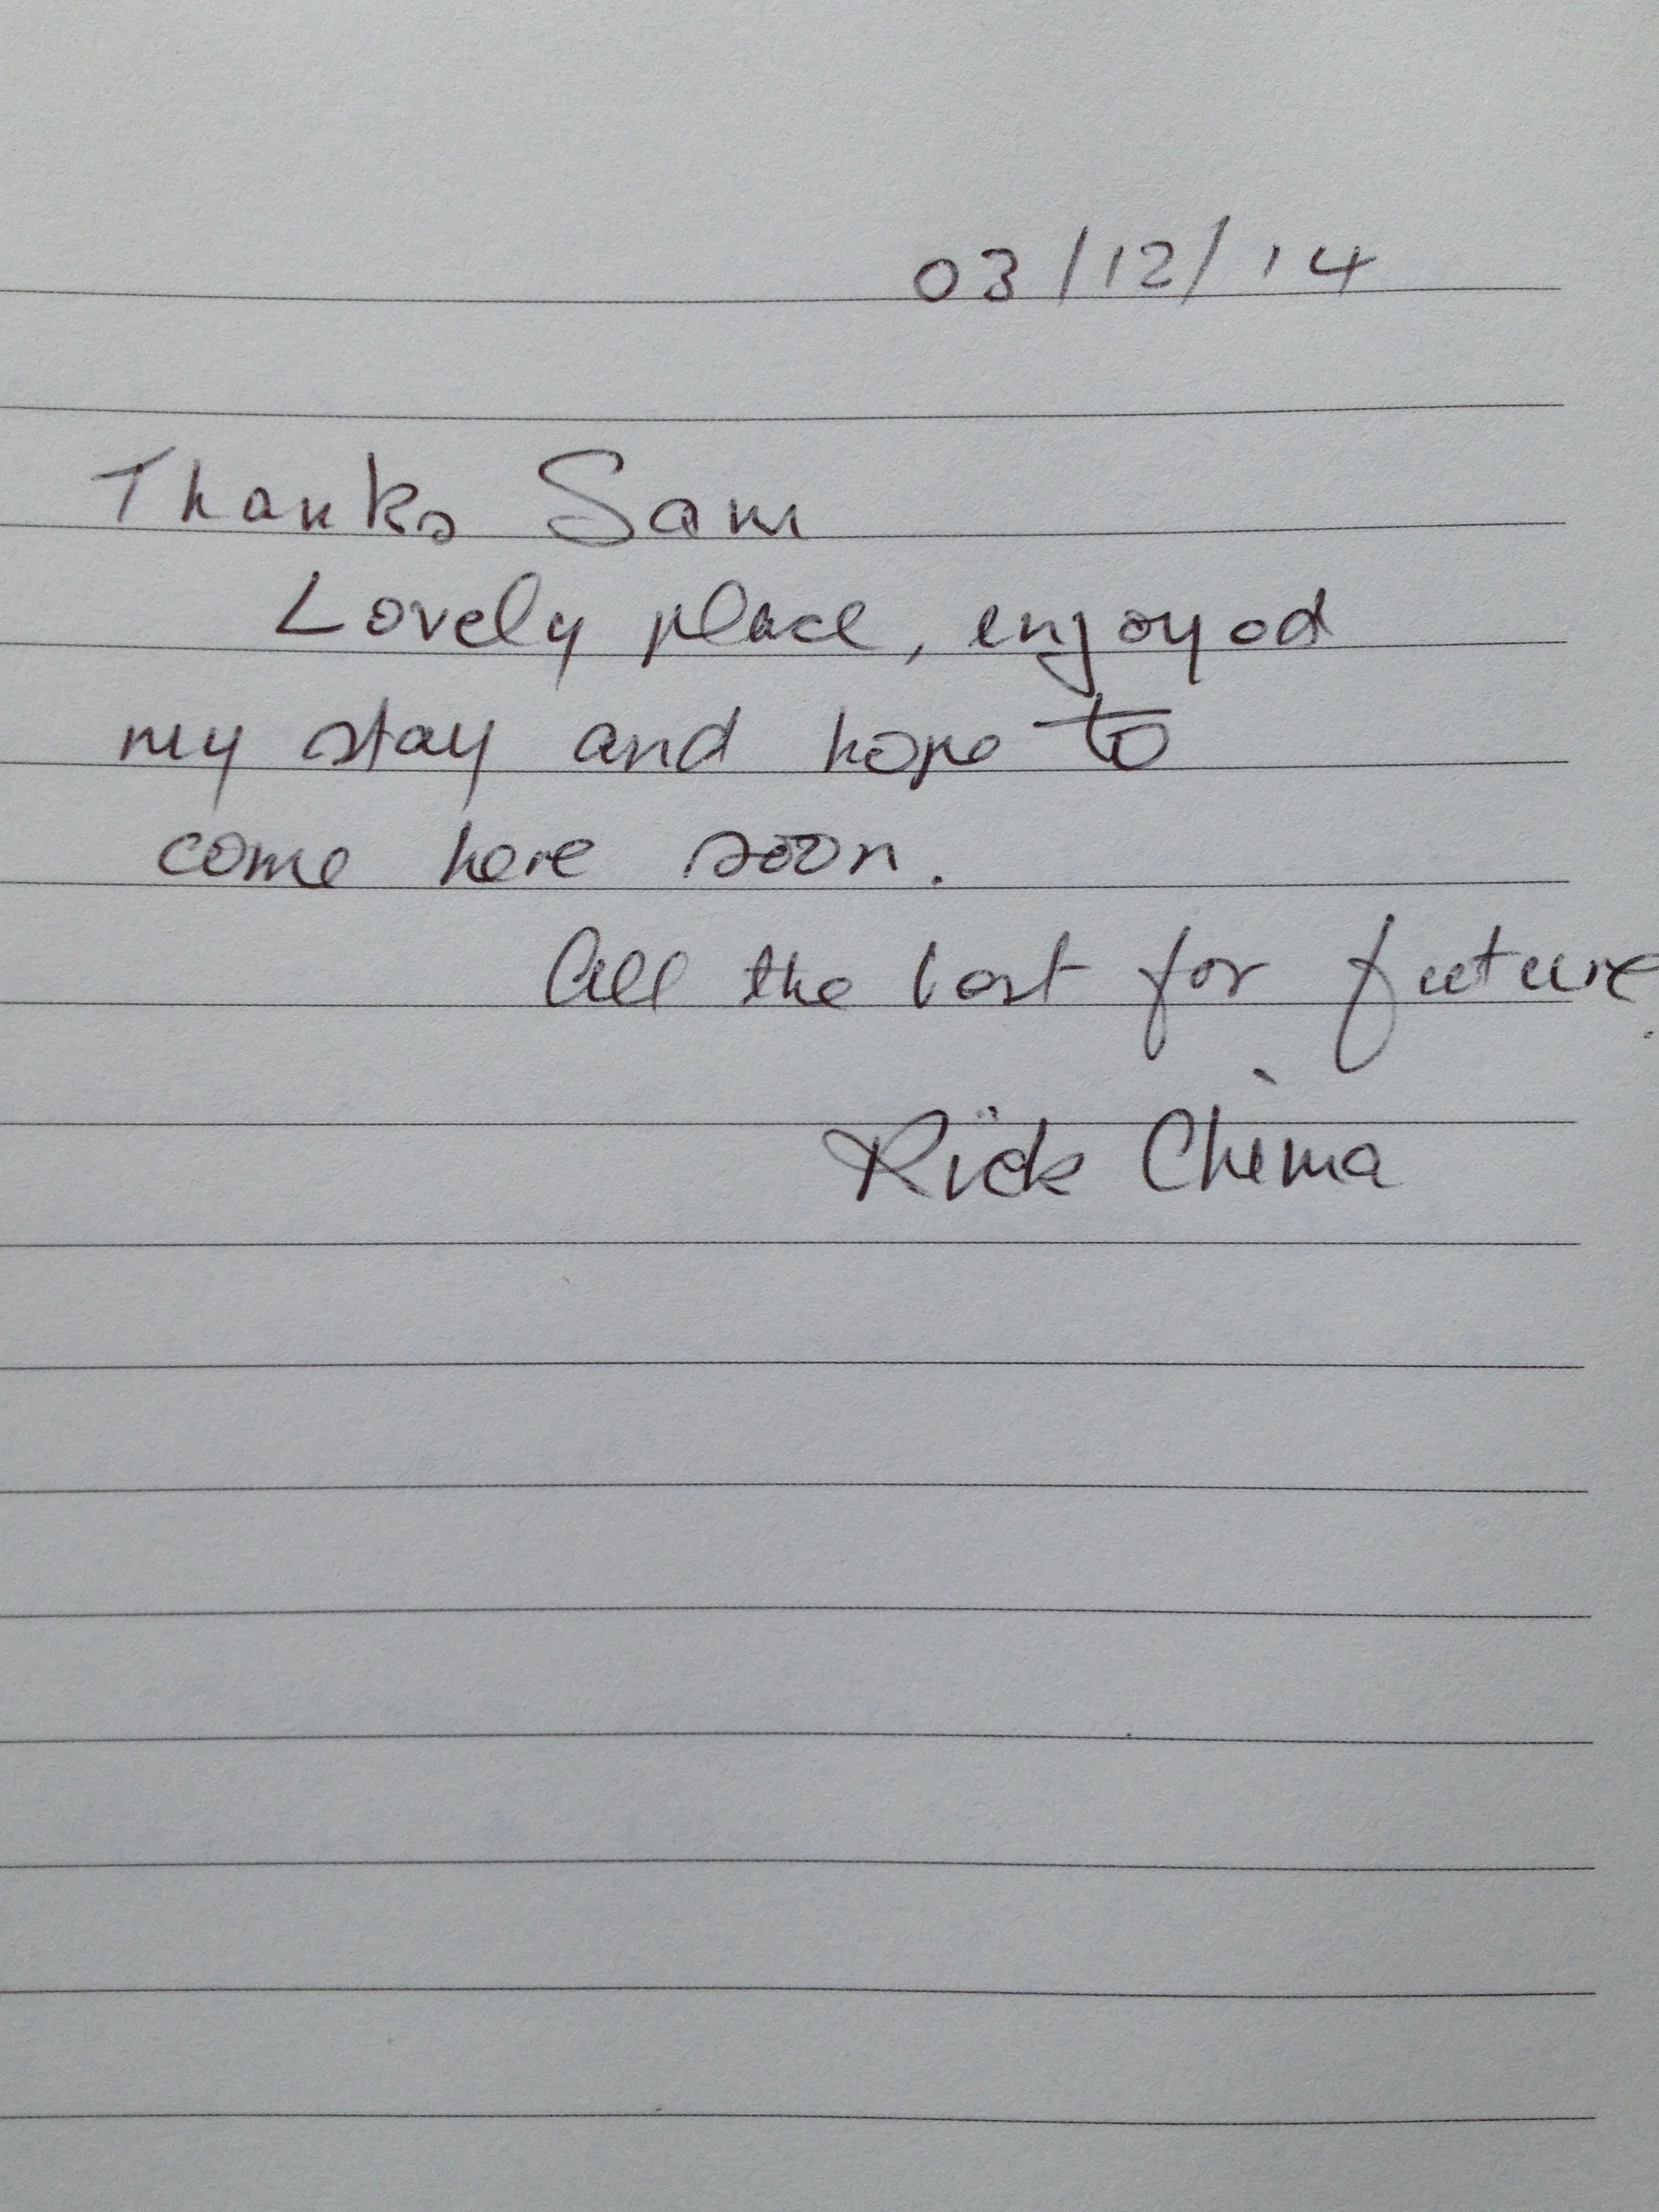 03/12/14
Thanks Sam
Lovely place, enjoyed
my stay and hope to
come here soon.
All the best for future.
Rick Chima